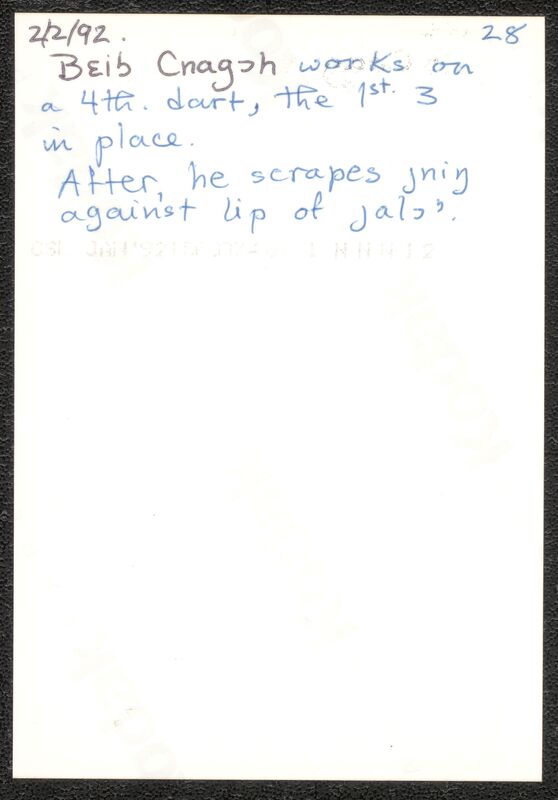 2/2/92. 28
Bɛib Cnagɔh works on
a 4th. dart, the 1st. 3
in place.
After, he scrapes ɟniŋ
against lip of ɟalɔˀ.
Kodak
Kodak